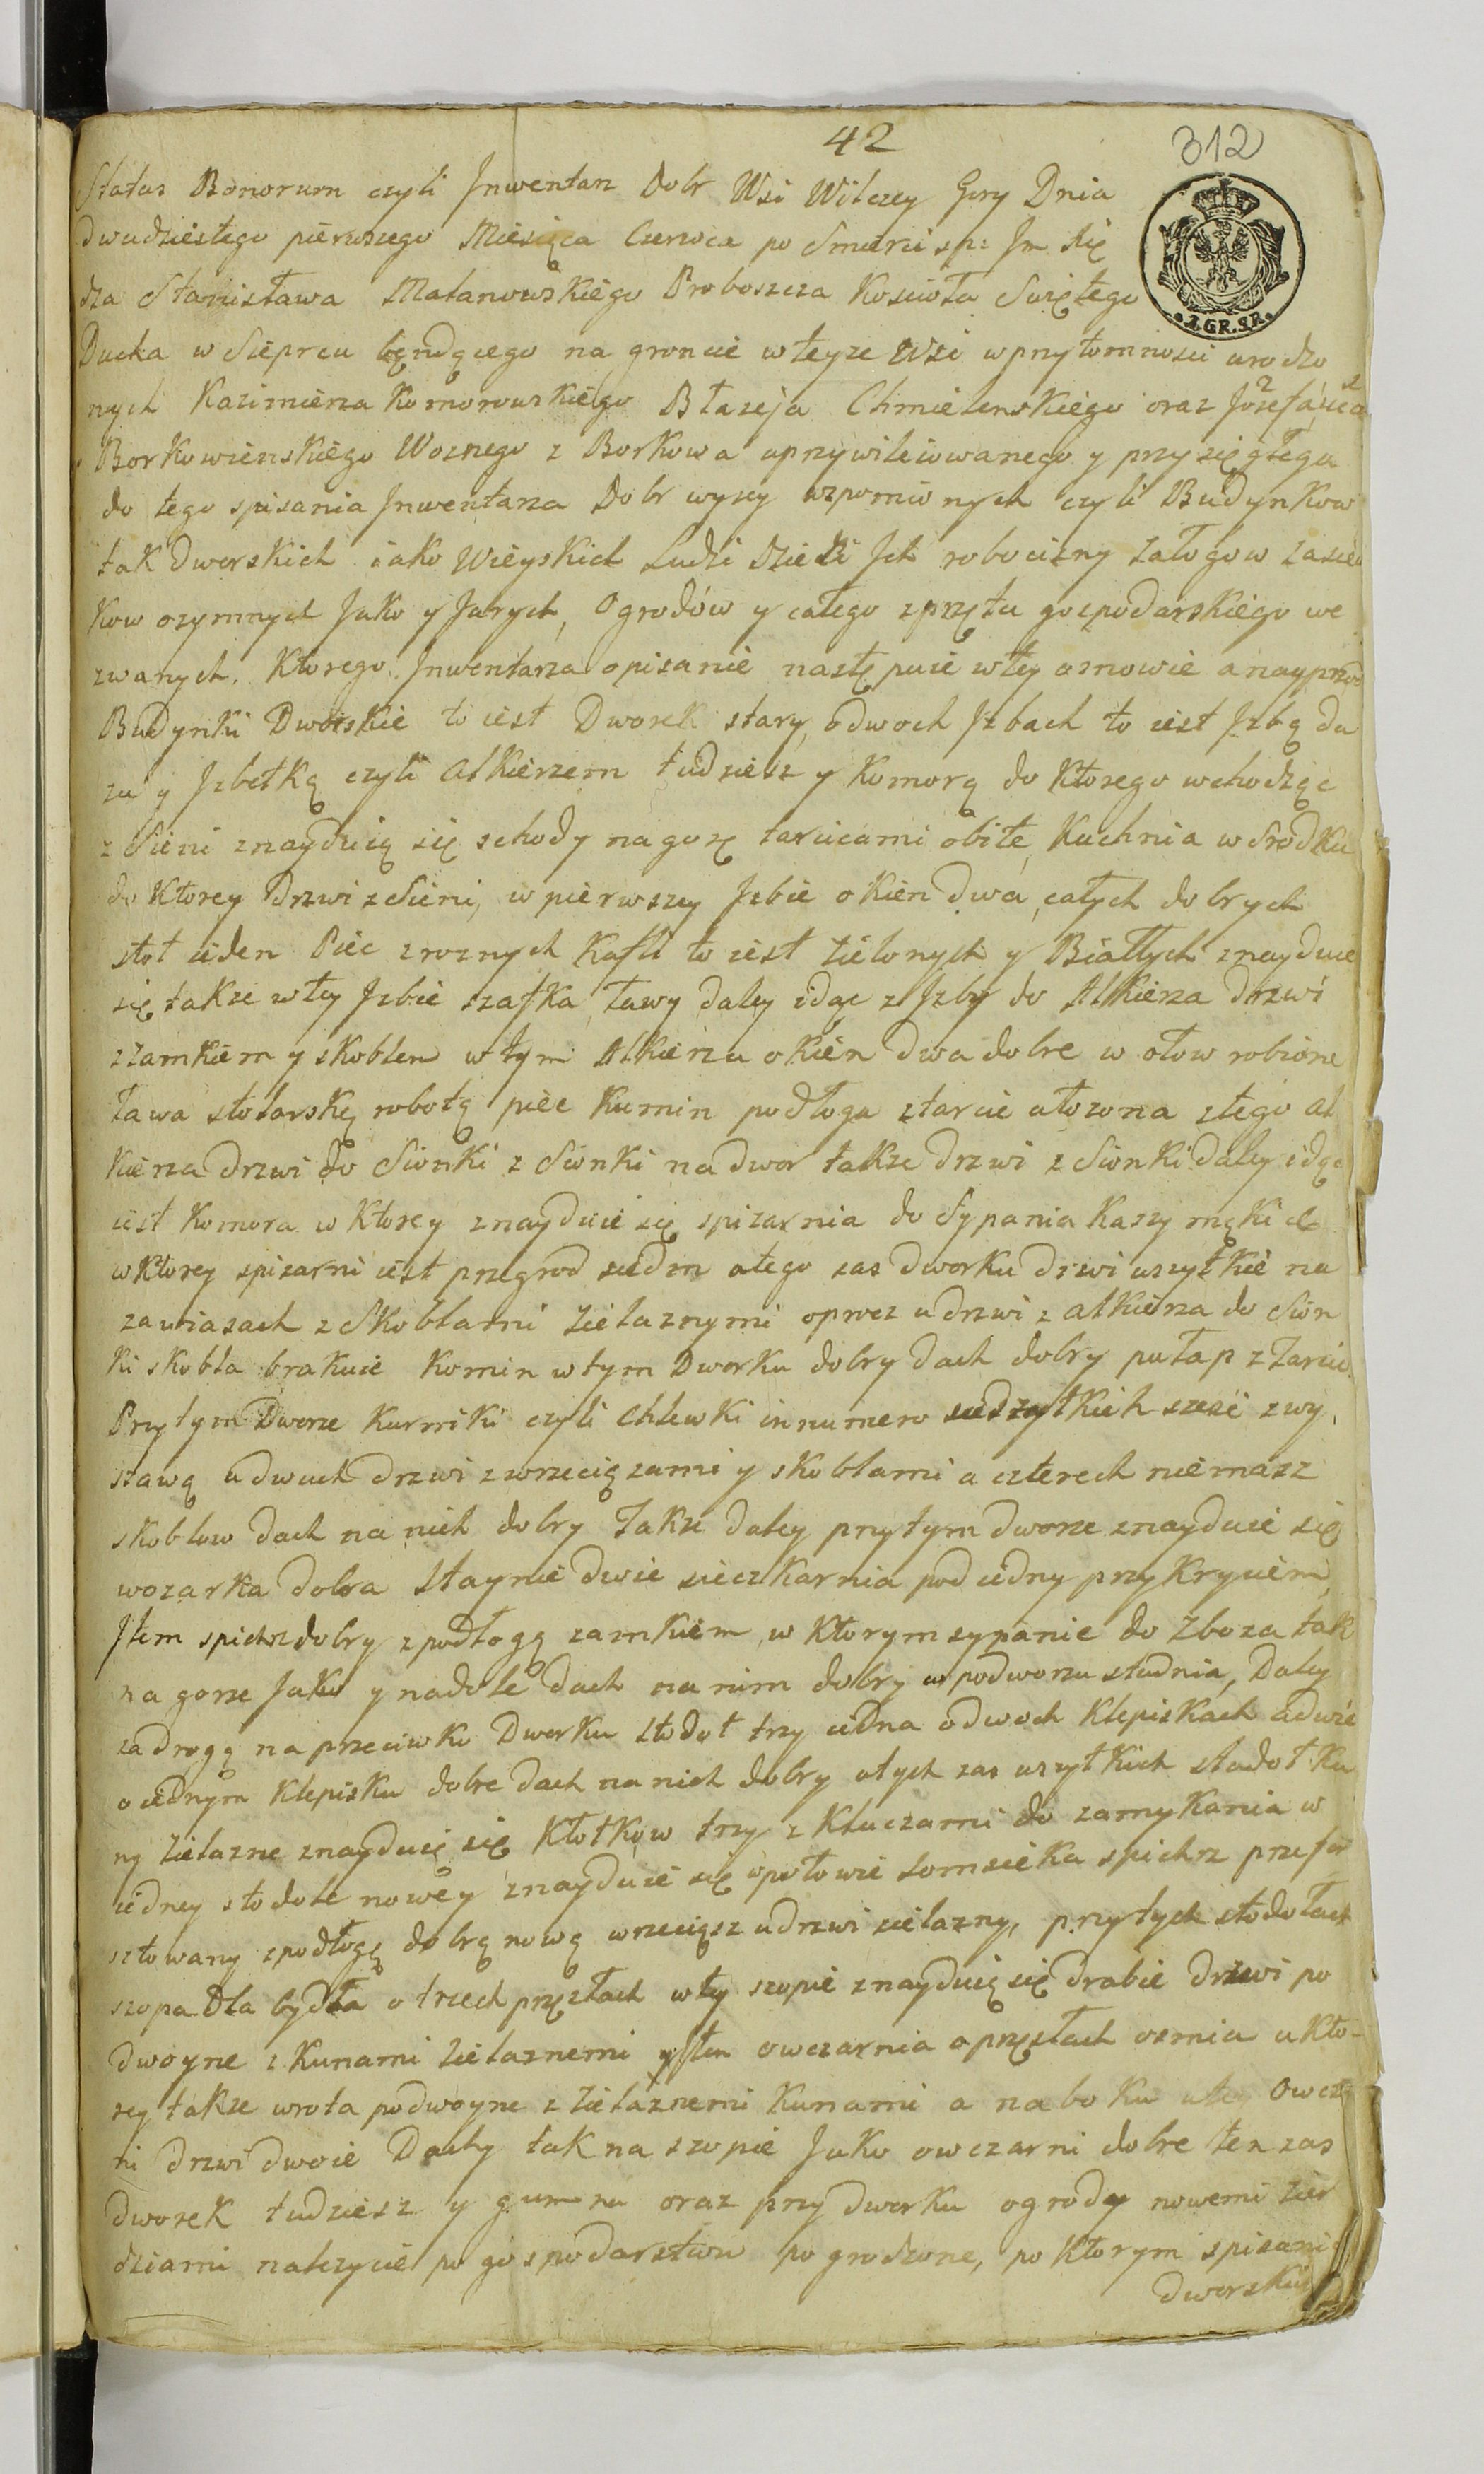 42
312
Status Bonorum czyli Jnwentarz Dobr Wsi Wilczey Gory Dnia
dwudziestego pierwszego Miesiąca Czerwca po Smierci sp: Jm Xię
dza Stanisława Matanowskiego Proboszcza Kościoła Swiętego
Ducha w Sieprcu będącego na groncie w teyze Wsi w przytomnosci urodzo
nych Kazimierza Komorowskiego Błazeja Chmielewskiego oraz Jozefa
Borkowienskiego Woznego z Borkowa uprzywileiowanego y przysięgłego
do tego spisania Jnwentarza Dobr wyzey wzpomionych czyli Budynkow
tak Dworskich iako Wieyskich Ludzi Dzieci Jch robocizny załogow zasie
kow ozymnych Jako y Jarych, Ogrodów y całego zprzętu gospodarskiego we
zwanych. Ktorego Jnwentarza opisanie następuie w tey osnowie a nayprzod
Budynki Dworskie to iest Dworek stary, o dwoch Jzbach to iest Jzbą du
zu y Jzbetką czyli Alkierzem tudziesz y Komorą do Ktorego wchodząc
z Sieni znayduią się schody na gorę tarcicami obite, Kuchnia w Srodku
do Ktorey Drzwi z Sieni, w pierwszey Jzbie okien dwa, całych dobrych
stoł ieden Piec z roznych Kafli to iest zielonych y Białłych znayduie
się takze w tey Jzbie szafka, ławy daley idąc z Jzby do Alkierza drzwi
z zamkiem y skoblem w tym Alkierzu okien dwa dobre w ołow robione
Ława stolarską robotą piec kumin podłoga z tarcic ułozona z tego Al
kierza drzwi do Sionki z Sionki na dwor takze drzwi z Sionki daley idąc
iest Komora w Ktorey znayduie się spizarnia do Sypania Kaszy mąki
w Ktorey spizarni iest przegrod siedm u tego zas dworku drzwi uszytkie na
zawiasach z Skoblami zielaznymi oprocz u drzwi z alkierza do Sion
ki skobla brakuie Komin w tym Dworku dobry dach dobry pułap z Tarcic.
Przy tym Dworze Kurniki czyli Chlewki in numero szesc z wy,
stawą u dwuch drzwi z wrzeciązami y skoblami a czterech niemasz
skoblow dach na nich dobry Takze daley przy tym dworze znayduie się
wozarka dobra Staynie dwie sieczkarnia pod iedny przykryciem,
Jtem spichrz dobry z podłogą zamkiem, w Ktorym sypanie do Zboza tak
na gorze Jako y na dole dach na nim dobry w podworzu studnia, Daley
za drogą na przeciwko Dworku stodoł trzy iedna o dwoch Klepiskach a dwie
o iednym Klepisku dobre dach na nich dobry u tych zas uszytkich stodoł Ku
ny zielazne znayduią się Kłotkow trzy z Kluczami do zamykania w
iedney stodole nowey znayduie się w połowie somsieka spichrz przefor
sztowany z podłogą dobrą nową wrzeciąsz u drzwi zielazny, przy tych stodołach
szopa dla bydła o trzech przęsłach w tey szopie znayduią się drabie drzwi po
dwoyne z Kunami zielaznemi y Jtem owczarnia o przęsłach osmiu u Kto-
rey takze wrota podwoyne z zielaznemi Kunami a na boku u tey Owczar
ni drzwi dwoie Dachy tak na szopie Jako owczarni dobre ten zas
dworek tudziesz y gumna oraz przy dworku ogrody nowemi zier
dziami nalezycie po gospodarstwu pogrodzone, po Ktorym spisaniu
dworskich
2.GR.SR.